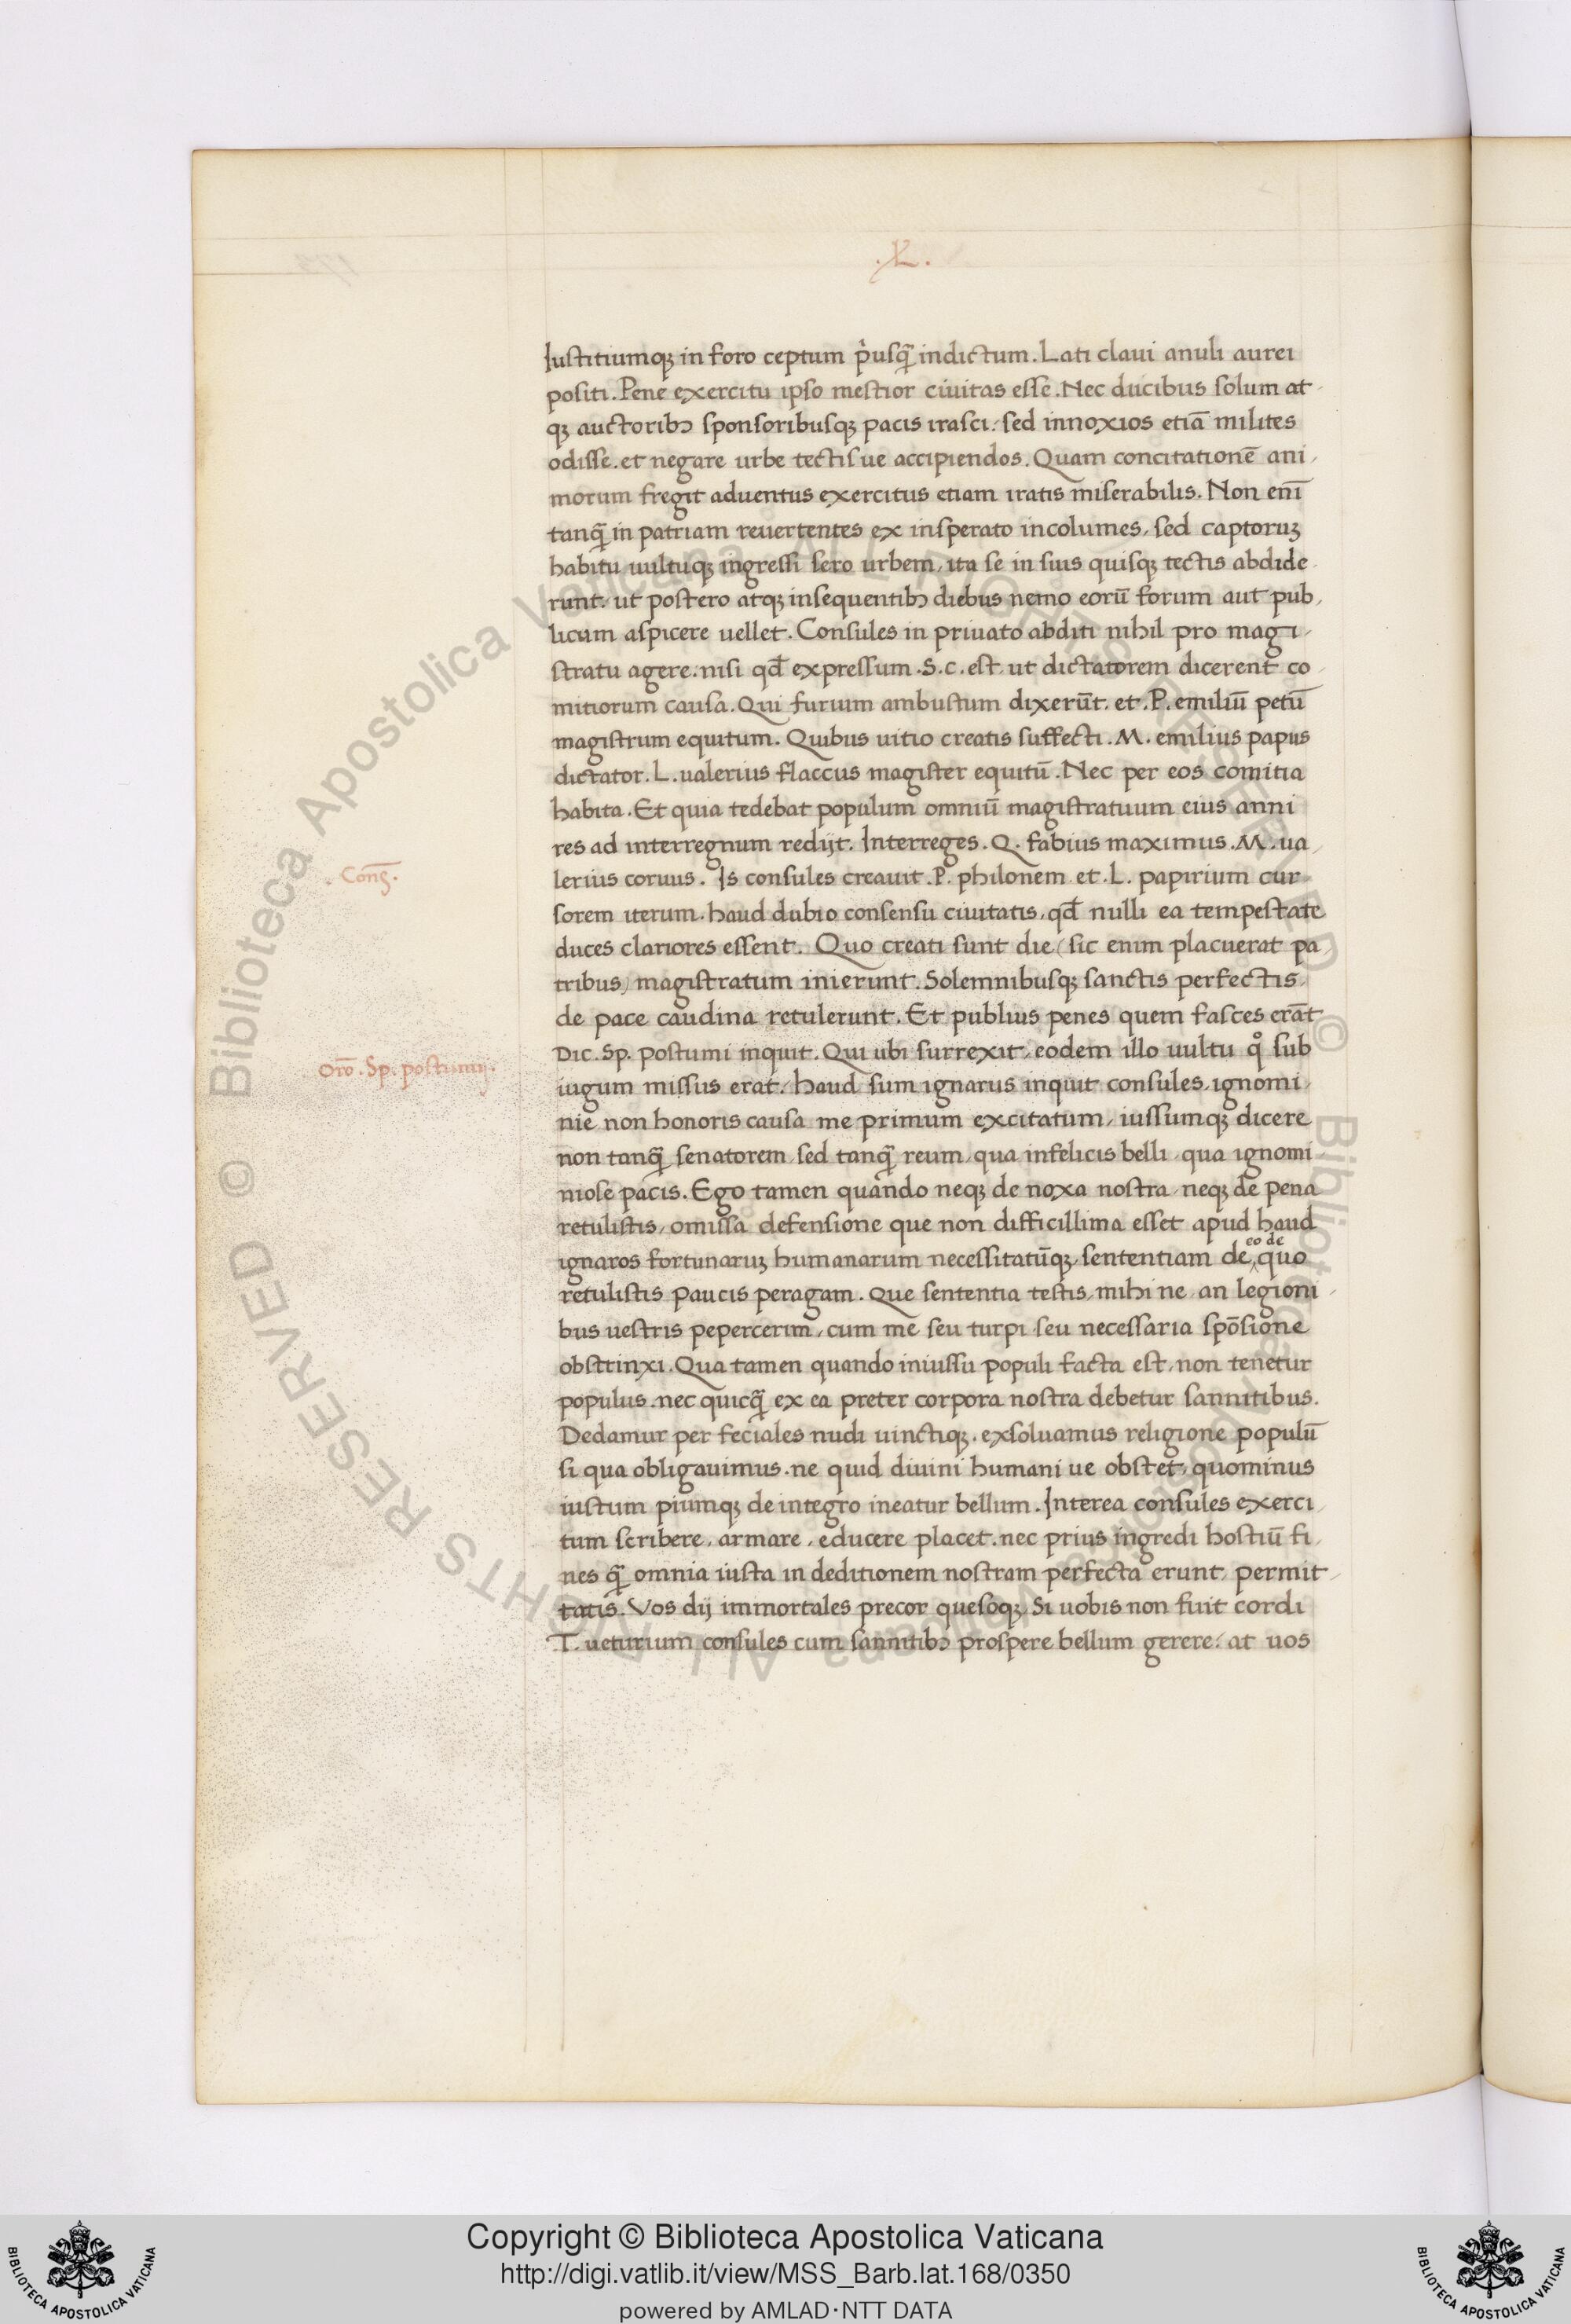 .L.
Iustitiumqꝫ in foro ceptum p̓usq̄ indictum. Lati claui anuli aurei
positi. Pene exercitu ipso mestior ciuitas esse. Nec ducibus solum at-
qꝫ auctoribꝰ sponsoribusqꝫ pacis irasci, sed innoxios etiā milites
odisse. et negare urbe tectisue accipiendos. Quam concitationē ani-
morum fregit aduentus exercitus etiam iratis miserabilis. Non enī
tanq̄ in patriam reuertentes ex insperato incolumes, sed captoruꝫ
habitu uultuqꝫ ingressi sero urbem, ita se in suis quisqꝫ tectis abdide-
runt, ut postero atqꝫ insequentibꝰ diebus nemo eorū forum aut pub-
licum aspicere uellet. Consules in priuato abditi nihil pro magi-
stratu agere. nisi qđ expressum .S.c. est, ut dictatorem dicerent co-
mitiorum causa. Qui furium ambustum dixerūt. et .P. emiliū petū
magistrum equitum. Quibus uitio creatis suffecti .M. emilius papus
dictator. L. ualerius flaccus magister equitū. Nec per eos comitia
habita. Et quia tedebat populum omniū magistratuum eius anni
res ad interregnum redijt. Interreges .Q. fabius maximus .M. ua-
. Cons̄.
lerius coruus. Is consules creauit .P. philonem et .L. papirium cur-
sorem iterum. haud dubio consensu ciuitatis, qđ nulli ea tempestate
duces clariores essent. Quo creati sunt die (sic enim placuerat pa-
tribus) magistratum inierunt. Solemnibusqꝫ sanctis perfectis,
de pace caudina retulerunt. Et publius penes quem fasces erāt
Oro̅. Sp. postumij.
Dic. Sp. Postumi inquit. Qui ubi surrexit, eodem illo uultu qͦ sub
iugum missus erat, haud sum ignarus inquit consules, ignomi-
nie non honoris causa me primum excitatum, iussumqꝫ dicere
non tanq̄ senatorem, sed tanq̄ reum, qua infelicis belli, qua ignomi
niose pacis. Ego tamen quando neqꝫ de noxa nostra, neqꝫ de pena
retulistis, omissa defensione que non difficillima esset apud haud
ignaros fortunaruꝫ humanarum necessitatūqꝫ, sententiam de ‸eo de quo
retulistis paucis peragam. Que sententia testis, mihi ne, an legioni-
bus uestris pepercerim, cum me seu turpi seu necessaria spōsione
obstrinxi. Qua tamen quando iniussu populi facta est, non tenetur
populus. nec quicq̄ ex ea preter corpora nostra debetur sannitibus.
Dedamur per feciales nudi uinctiqꝫ. exsoluamus religione populū
si qua obligauimus. ne quid diuini humani ue obstet, quominus
iustum piumqꝫ de integro ineatur bellum. Interea consules exerci-
tum scribere, armare, educere placet. nec prius ingredi hostiū fi-
nes q̄ omnia iusta in deditionem nostram perfecta erunt, permit-
tatis. Vos dij immortales precor quesoqꝫ, Si uobis non fuit cordi
T. ueturium consules cum sannitibꝰ prospere bellum gerere, at uos
© Biblioteca Apostolica Vaticana ALL RIGHTS RESERVED © Biblioteca Apostolica Vaticana ALL RIGHTS RESERVED
Copyright © Biblioteca Apostolica Vaticana
http://digi.vatlib.it/view/MSS_Barb.lat.168/0350
powered by AMLAD·NTT DATA
BIBLIOTECA APOSTOLICA VATICANA
BIBLIOTECA APOSTOLICA VATICANA